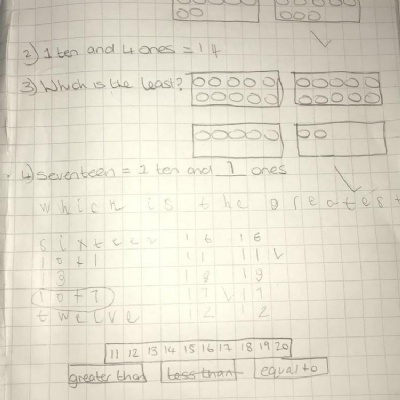 2) 1 ten and 4 ones = 14
3) Which is the least?
4) seventeen = 1 ten and 7 ones
which is the greatest
sixteen 16 16
10+1 11 11
13 19 19
10+7 17 17
twelve 12 12
11 12 13 14 15 16 17 18 19 20
greater than less than equal to